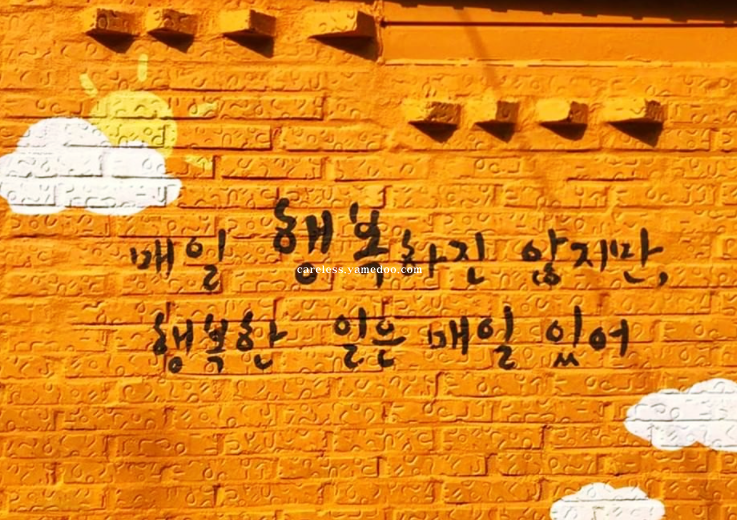 매일 행복하진 않지만,
careloss.yamedoo.com
행복한 일은 매일 있어